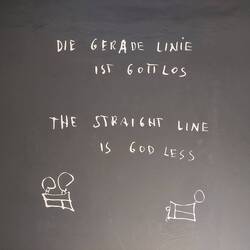 DIE GERADE LINIE
IST GOTTLOS
THE STRAIGHT LINE
IS GODLESS